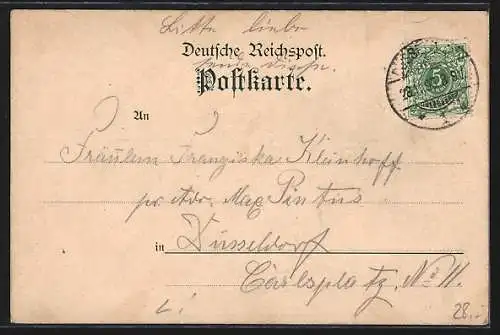 Bitte liebe
Deutsche Reichspost.
Postkarte.
An
Fräulein Franziska Kleinhoff
pr. Adr. Max Pintus
in Düsseldorf
Carlsplatz, No 11.
28.-
5